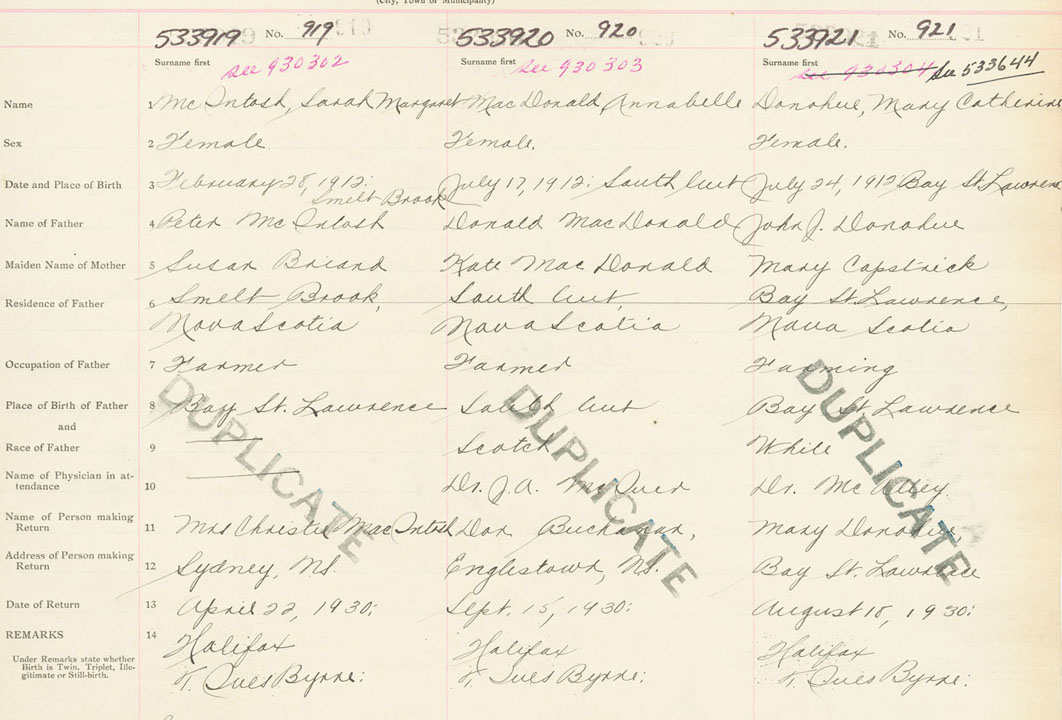 (City, Town or Municipality)
533919 No. 919 533920 No. 920 533921 No. 921
Surname first see 930302 Surname first see 930303 Surname first see 930304 See 533644
Name 1 McIntosh, Sarah Margaret MacDonald Annabelle Donohue, Mary Catherine
Sex 2 Female. Female. Female.
Date and Place of Birth 3 February 28, 1912: Smelt Brook July 17, 1912: South Gut July 24, 1912; Bay St. Lawrence
Name of Father 4 Peter McIntosh Donald MacDonald John J. Donohue
Maiden Name of Mother 5 Susan Briand Kate MacDonald Mary Capstick
Residence of Father 6 Smelt Brook, South Gut, Bay St. Lawrence,
Nova Scotia Nova Scotia Nova Scotia
Occupation of Father 7 Farmer Farmer Farming
Place of Birth of Father 8 Bay St. Lawrence South Gut Bay St Lawrence
and
Race of Father 9 Scotch White
Name of Physician in at-
tendance 10 Dr. J.A. Dr.
Name of Person making
Return 11 Mrs Christie MacIntosh Dan Buchanan, Mary Donohue,
Address of Person making
Return 12 Sydney, NS. Englishtown, NS. Bay St. Lawrence
Date of Return 13 April 22, 1930: Sept. 15, 1930: August 18, 1930:
REMARKS 14 Halifax Halifax Halifax
Under Remarks state whether
Birth is Twin, Triplet, Ille-
gitimate or Still-birth.
Byrne: Byrne: Byrne:
DUPLICATE DUPLICATE DUPLICATE